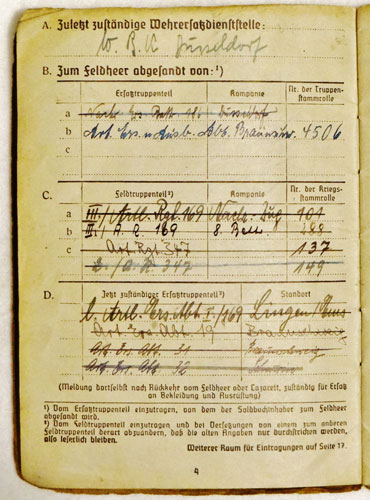 A. Zuletzt zuständige Wehrersatzdienststelle:
W. B. K Düsseldorf
B. Zum Feldheer abgesandt von:¹)
Ersatztruppenteil Kompanie Nr. der Truppenstammrolle
a
b Art. Ers. u. Ausb. Abt. 4506
c
C. Feldtruppenteil²) Kompanie Nr. der Kriegsstammrolle
a III./Artl. Rgt. 169 Nachr. Zug 101
b III./A. R. 169 8. Batt.
c Art. Rgt. 347 137
347 149
D. Jetzt zuständiger Ersatztruppenteil³) Standort
l. Artl. Ers. Abt. I./169 Lingen/Ems
Art. Ers. Abt. 19
Art. Ers. Abt.
Art. Ers. Abt.
(Meldung dortselbst nach Rückkehr vom Feldheer oder Lazarett, zuständig für Ersatz
an Bekleidung und Ausrüstung)
¹) Vom Ersatztruppenteil einzutragen, von dem der Soldbuchinhaber zum Feldheer
abgesandt wird.
²) Vom Feldtruppenteil einzutragen und bei Versetzungen von einem zum anderen
Feldtruppenteil derart abzuändern, daß die alten Angaben nur durchstrichen werden,
also leserlich bleiben.
Weiterer Raum für Eintragungen auf Seite 17.
4